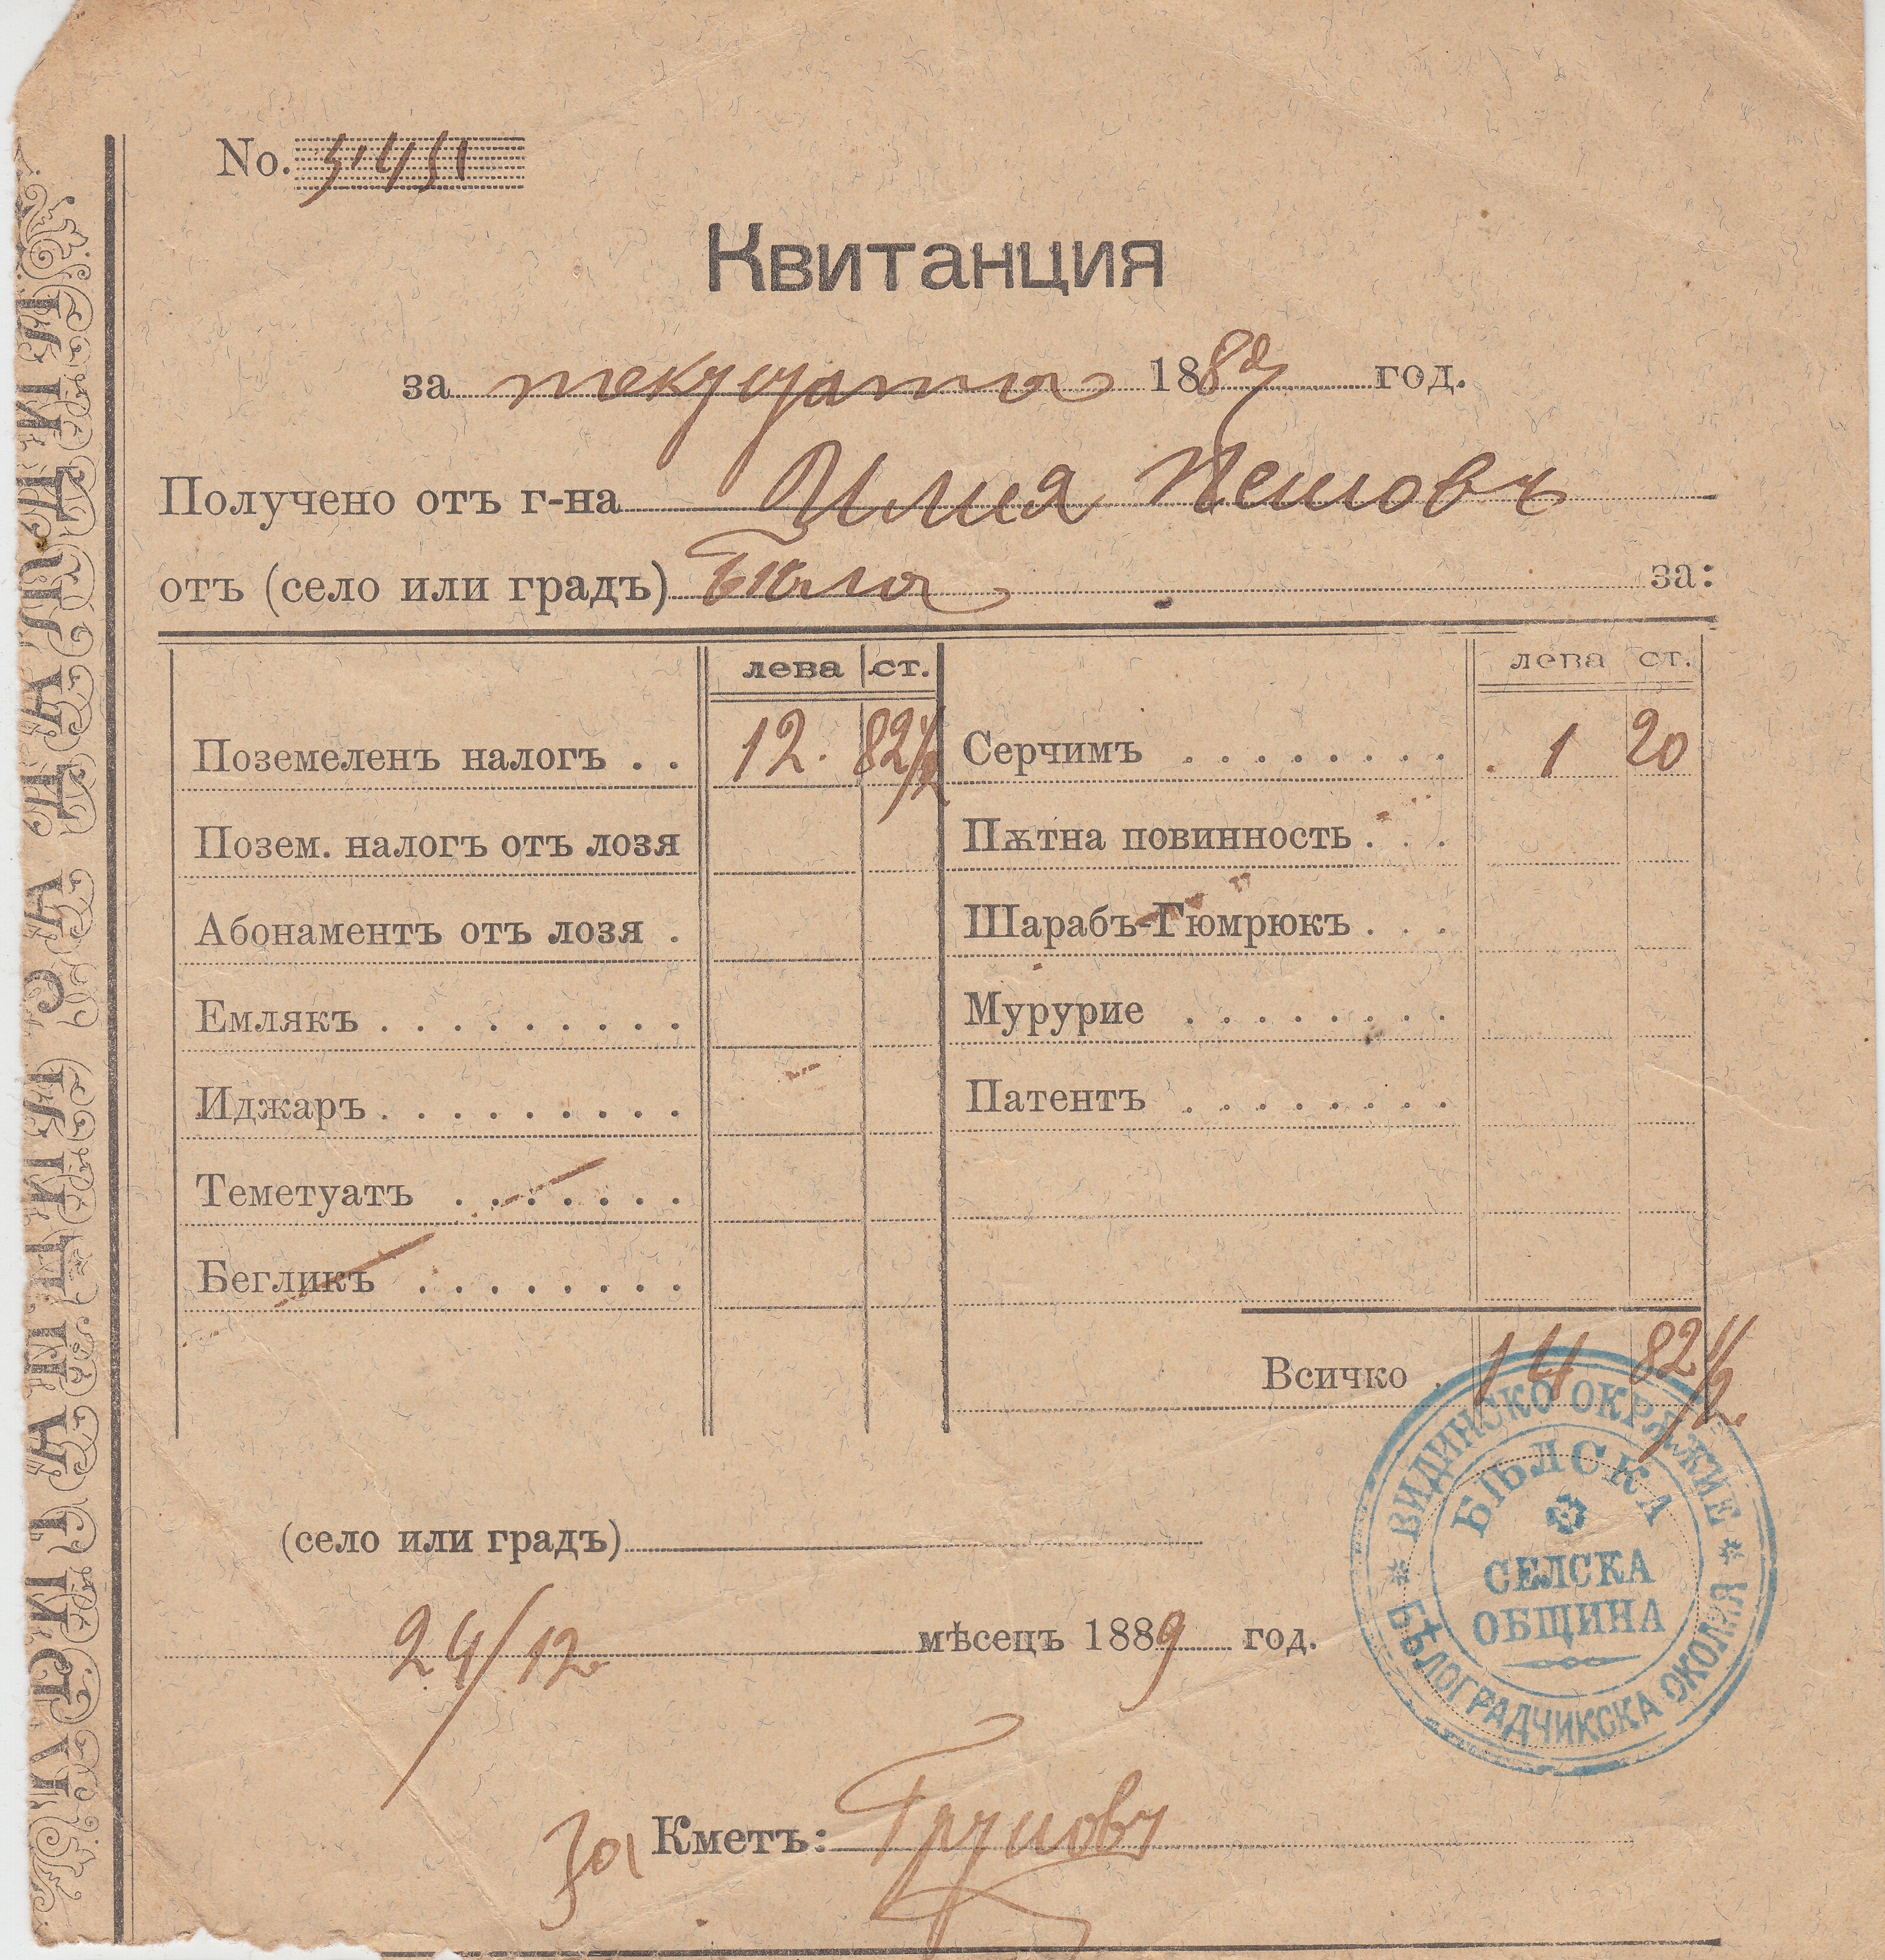 No. 5451
Квитанция
за текущата 1889 год.
Получено отъ г-на Илия Пешовъ
отъ (село или градъ) Бѣла за:
лева ст. лева ст.
Поземеленъ налогъ . . 12. 82 1/2 Серчимъ . . . . . . . . 1 20
Позем. налогъ отъ лозя Пѫтна повинность . . .
Абонаментъ отъ лозя . Шарабъ-Гюмрюкъ . . .
Емлякъ . . . . . . . . . Мурурие . . . . . . . .
Иджаръ . . . . . . . . . Патентъ . . . . . . . .
Теметуатъ . . . . . . .
Бегликъ . . . . . . . .
Всичко . 14 82 1/2
(село или градъ)
24/12 мѣсецъ 1889 год.
За Кметъ:
* ВИДИНСКО ОКРѪЖИЕ *
БѢЛОГРАДЧИКСКА ОКОЛИЯ
БѢЛСКА
СЕЛСКА
ОБЩИНА
КВИТАНЦИЯ ЗА ДАНЪЦИТѢ